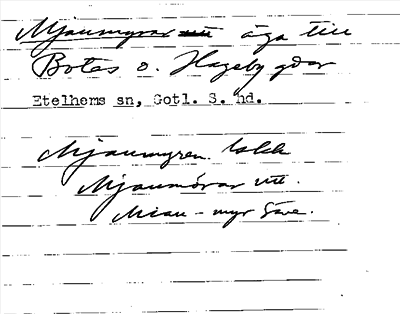 Mjaumyrar äga till
Botes o. Hageby gdar
Etelhems sn, Gotl. S. hd.
Mjaumyren
Mjaumörar utt.
Miau-myr Säve.